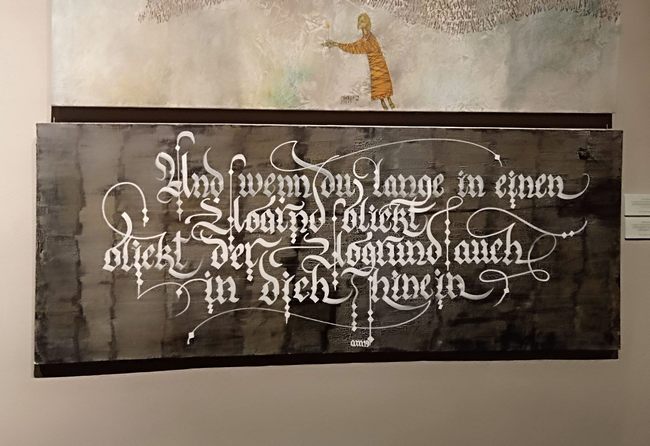 Und wenn du lange in einen
Abgrund blickt
blickt der Abgrund auch
in dich hinein